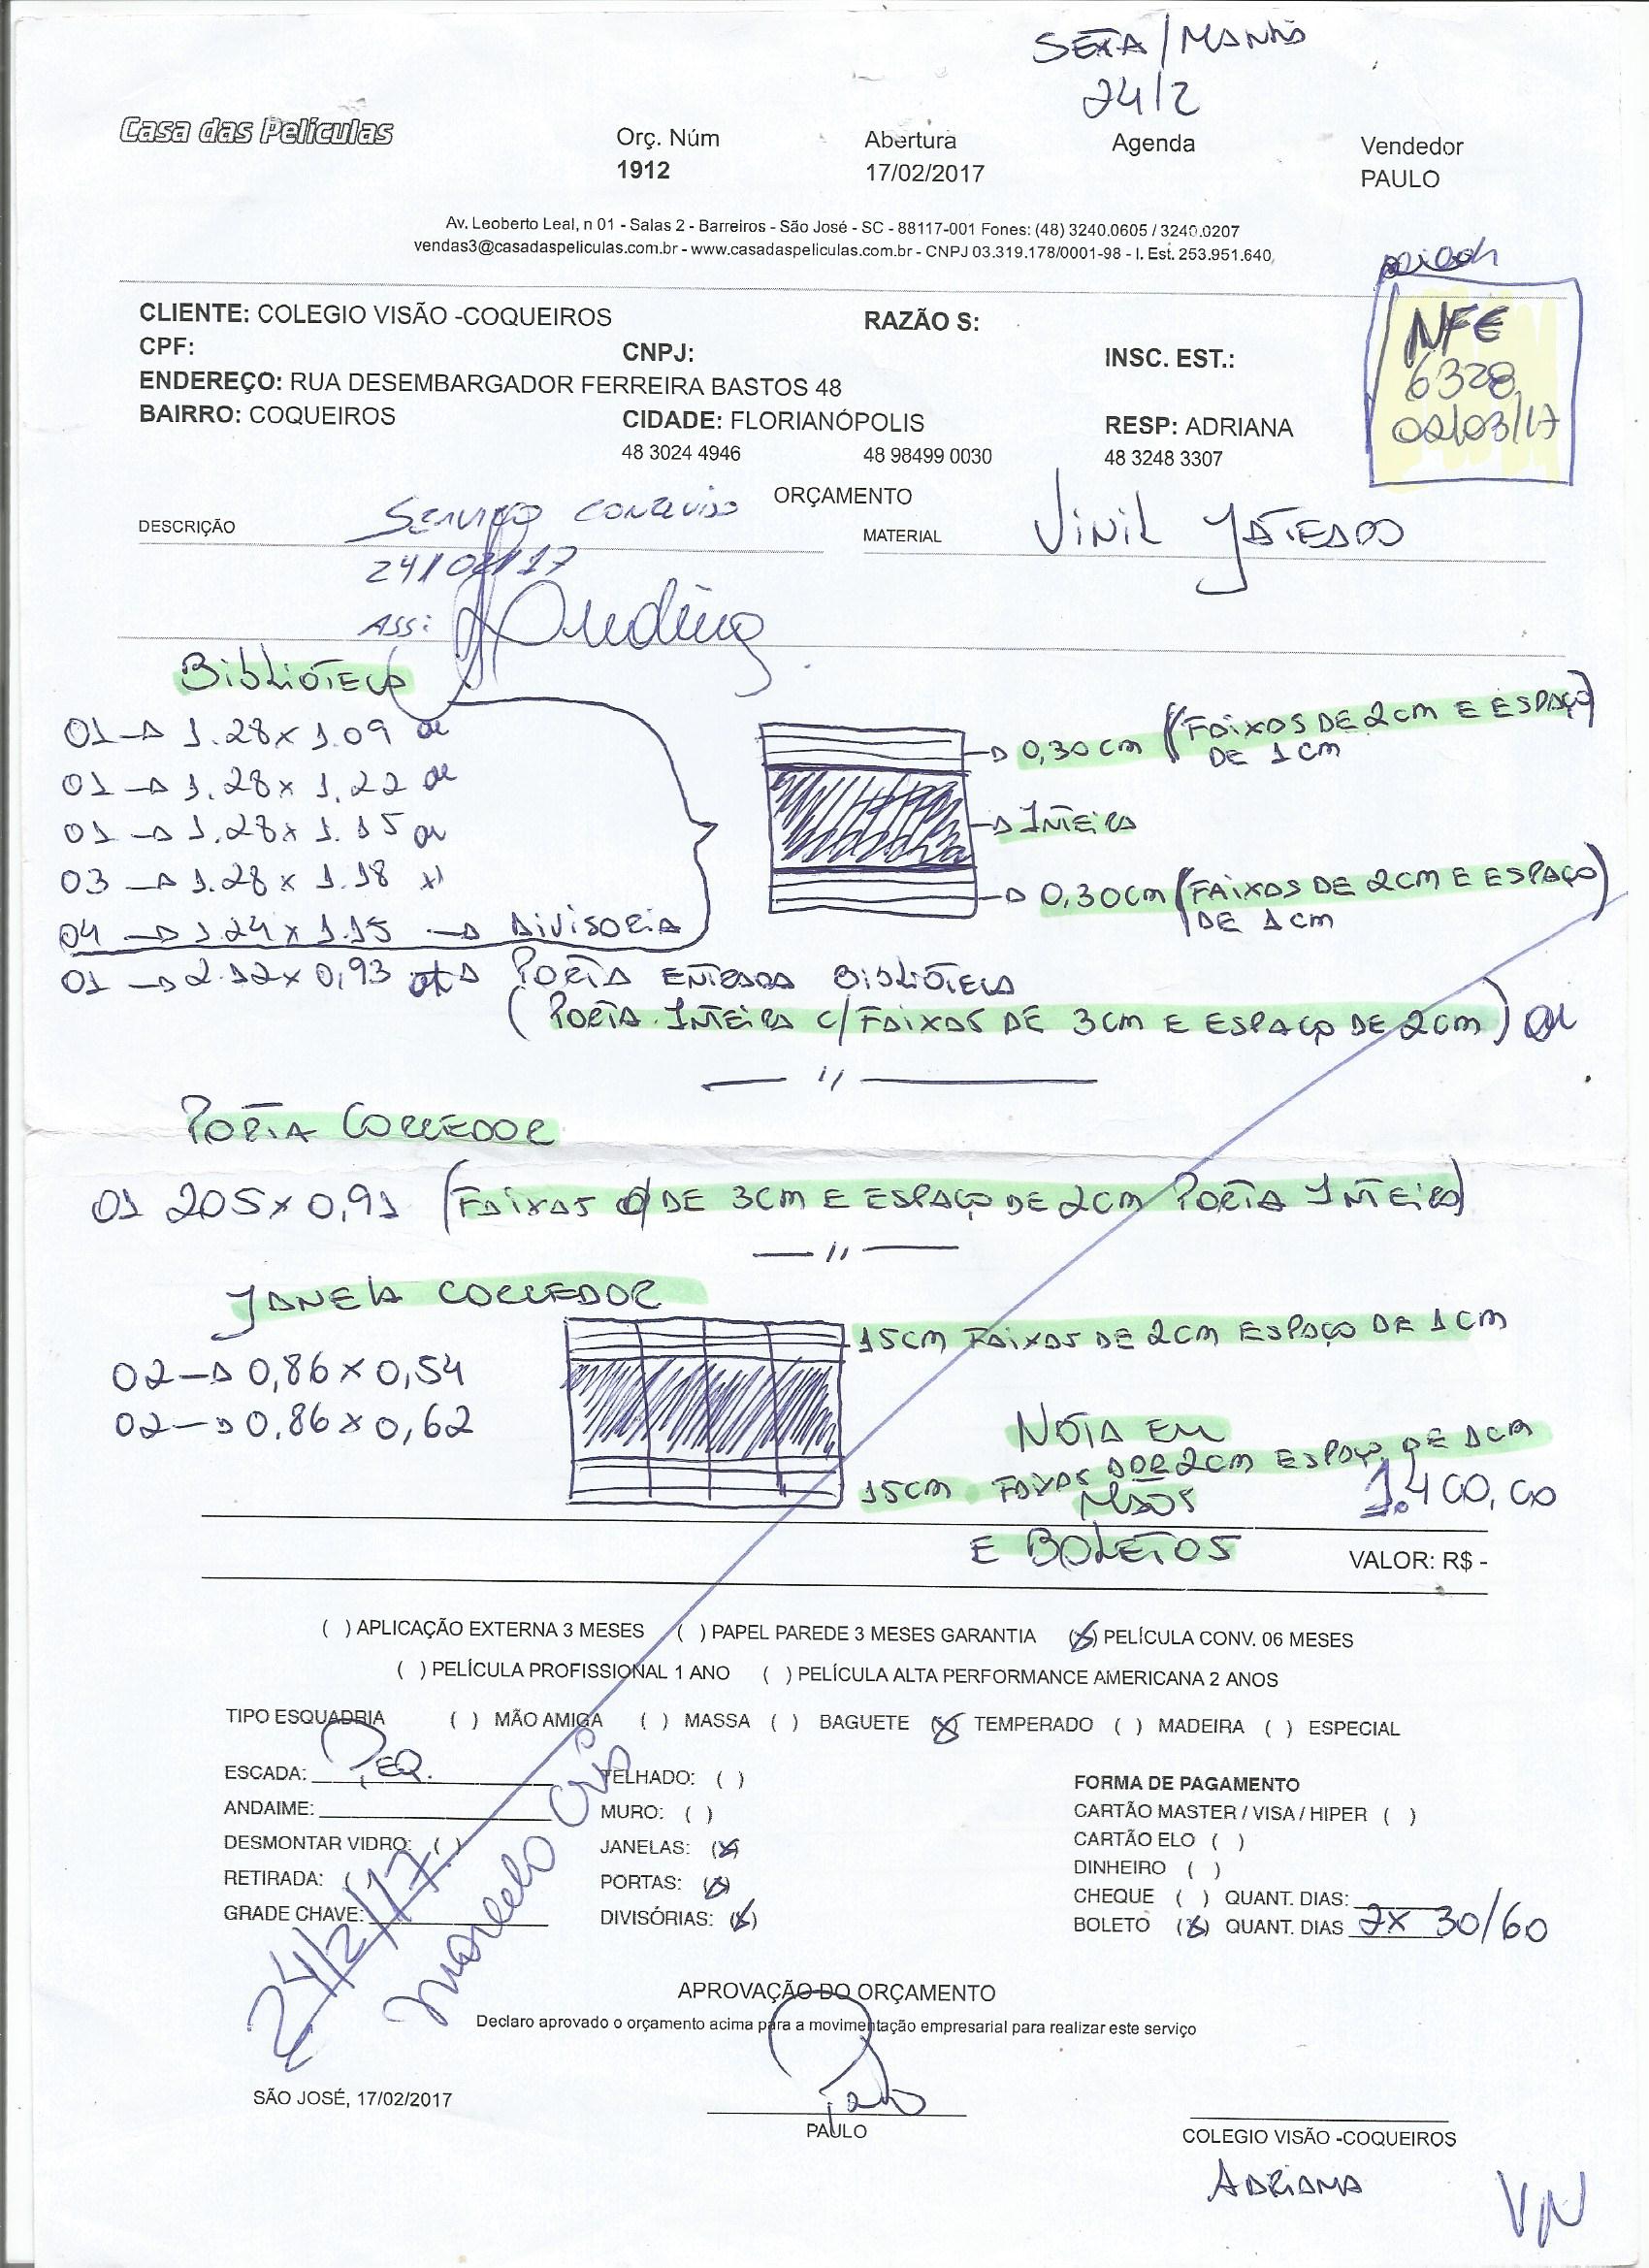 SEXTA / MANHÃ
24/2
Casa das Películas
Orç. Núm Abertura Agenda Vendedor
1912 17/02/2017 PAULO
Av. Leoberto Leal, n 01 - Salas 2 - Barreiros - São José - SC - 88117-001 Fones: (48) 3240.0605 / 3240.0207
vendas3@casadaspeliculas.com.br - www.casadaspeliculas.com.br - CNPJ 03.319.178/0001-98 - I. Est. 253.951.640
NFE
6328
02/03/17
CLIENTE: COLEGIO VISÃO -COQUEIROS RAZÃO S:
CPF: CNPJ: INSC. EST.:
ENDEREÇO: RUA DESEMBARGADOR FERREIRA BASTOS 48
BAIRRO: COQUEIROS CIDADE: FLORIANÓPOLIS RESP: ADRIANA
48 3024 4946 48 98499 0030 48 3248 3307
ORÇAMENTO
DESCRIÇÃO SERVIÇO CONCLUIDO MATERIAL VINIL JATEADO
24/02/17
ASS:
BIBLIOTECA
01 → 1.28 x 1.09 ok
01 → 1.28 x 1.22 ok
01 → 1.28 x 1.15 ok
03 → 1.28 x 1.18
04 → 1.24 x 1.15 → DIVISORIA
→ 0,30 CM (FAIXAS DE 2 CM E ESPAÇO)
DE 1 CM
→ INTEIRA
→ 0,30 CM (FAIXAS DE 2 CM E ESPAÇO)
DE 1 CM
01 → 2.12 x 0,93 → PORTA ENTRADA BIBLIOTECA
(PORTA INTEIRA C/ FAIXAS DE 3 CM E ESPAÇO DE 2 CM) OK
— // —
PORTA CORREDOR
01 205 x 0,91 (FAIXAS DE 3 CM E ESPAÇO DE 2 CM PORTA INTEIRA)
— // —
JANELA CORREDOR
15 CM FAIXAS DE 2 CM ESPAÇO DE 1 CM
02 → 0,86 x 0,54
02 → 0,86 x 0,62
NOTA EM
15 CM FAIXAS DE 2 CM ESPAÇO DE 1 CM
MÃOS 1.400,00
E BOLETOS
VALOR: R$ -
( ) APLICAÇÃO EXTERNA 3 MESES ( ) PAPEL PAREDE 3 MESES GARANTIA (X) PELÍCULA CONV. 06 MESES
( ) PELÍCULA PROFISSIONAL 1 ANO ( ) PELÍCULA ALTA PERFORMANCE AMERICANA 2 ANOS
TIPO ESQUADRIA ( ) MÃO AMIGA ( ) MASSA ( ) BAGUETE (X) TEMPERADO ( ) MADEIRA ( ) ESPECIAL
ESCADA: PEQ. TELHADO: ( )
ANDAIME: MURO: ( )
DESMONTAR VIDRO: ( ) JANELAS: (X)
RETIRADA: ( ) PORTAS: (X)
GRADE CHAVE: DIVISÓRIAS: (X)
24/2/17
FORMA DE PAGAMENTO
CARTÃO MASTER / VISA / HIPER ( )
CARTÃO ELO ( )
DINHEIRO ( )
CHEQUE ( ) QUANT. DIAS:
BOLETO (X) QUANT. DIAS 2X 30/60
APROVAÇÃO DO ORÇAMENTO
Declaro aprovado o orçamento acima para a movimentação empresarial para realizar este serviço
SÃO JOSÉ, 17/02/2017
PAULO
COLEGIO VISÃO -COQUEIROS
ADRIANA
VN